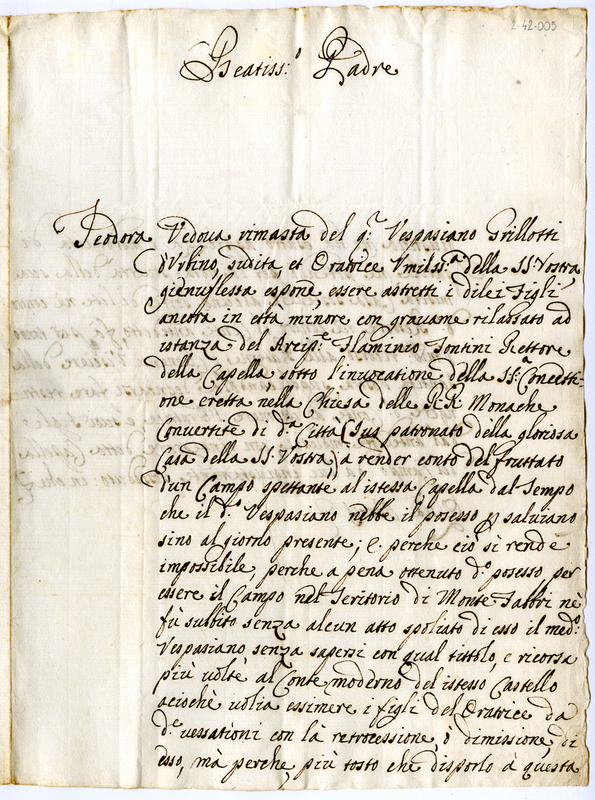 2-42-005
Beatiss:o Padre
Teodora Vedoua rimasta del q:r Vespasiano Grillotti
d'Vrbino, sudita et Oratrice Vmilss:a della SS: Vostra
genuflessa espone essere astretti i dilei Figli
ancora in ettà minore con grauame rilassato ad
istanza del Flaminio Fontini Rettore
della Capella sotto l'inuocatione della SS:a Concetti-
one eretta nella Chiesa delle R:R: Monache
Conuertite di d:a Città (Jus patronato della gloriosa
Casa della SS: Vostra) a render conto del fruttato
d'un Campo spettante al istessa Capella dal Tempo
che il d:o Vespasiano n'ebbe il posesso saluiano
sino al giorno presente; e perche ciò si rende
impossibile, perche a pena ottenuto d:o posesso, per
essere il Campo nel Teritorio di Monte Fabbri nè
fù subbito senza alcun atto spoliato di esso il med:o
Vespasiano senza sapersi con qual tittolo, e ricorsa
più uolte al Conte moderno del istesso Castello
aciochè uolia essimere i figli del Oratrice da
d:e uessationi con là retrocessione, ò dimissione di
esso, mà perche più tosto che disporlo à questa